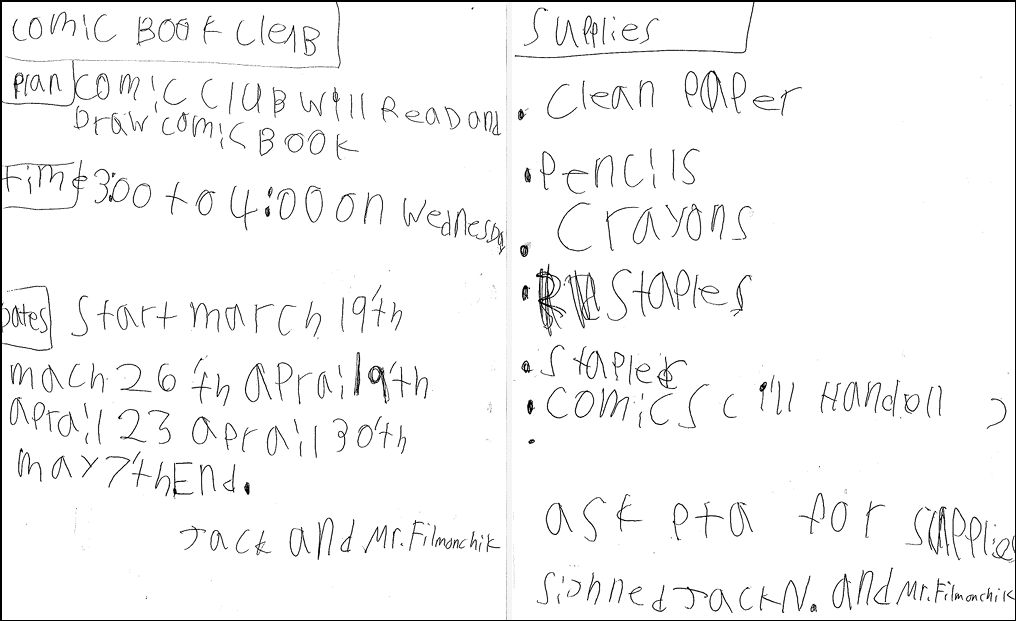 COMIC BOOK ClUB
Plan COMIC CLUB Will ReaD and
Draw comic BOOK
Time 3:00 to 4:00 on Wednesday
Dates Start march 19'th
mach 26'th aprail 9'th
aprail 23 aprail 30'th
may 7'th End.
Jack and Mr. Filmonchik
Supplies
• Clean PaPer
• Pencils
• Crayons
• Staples
• Stapler
• COMICS ( i'll Handoll )
•
ask pta for supplies
Sighned Jack N. and Mr. Filmonchik